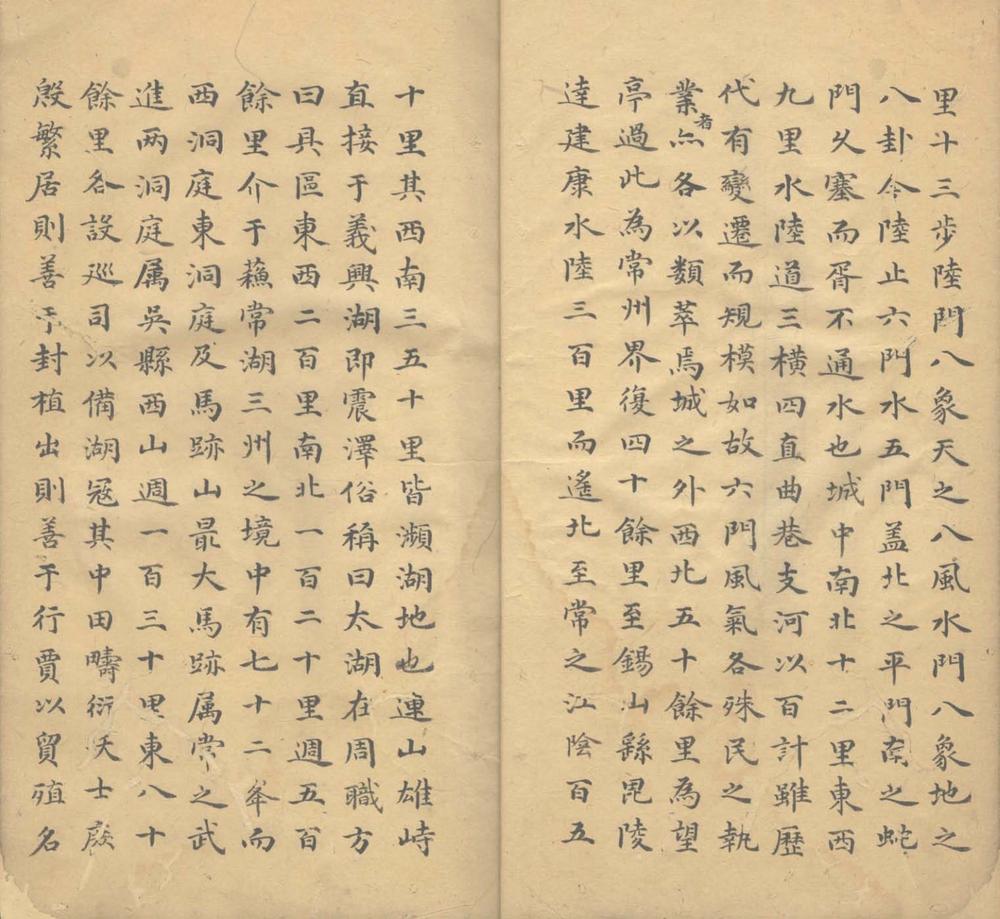 里十三步陸門八象天之八風水門八象地之
八卦今陸止六門水五門盖北之平門南之蛇
門久塞而胥不通水也城中南北十二里東西
九里水陸道三橫四直曲巷支河以百計雖歷
代有變遷而規模如故六門風氣各殊民之執
業者亦各以類萃焉城之外西北五十餘里為望
亭過此為常州界復四十餘里至錫山繇毘陵
達建康水陸三百里而遙北至常之江陰百五
十里其西南三五十里皆瀕湖地也連山雄峙
直接于義興湖即震澤俗稱曰太湖在周職方
曰具區東西二百里南北一百二十里週五百
餘里介于蘓常湖三州之境中有七十二峯而
西洞庭東洞庭及馬跡山最大馬跡属常之武
進两洞庭属吳縣西山週一百三十里東八十
餘里各設廵司以備湖冦其中田疇衍沃士廐
殷繁居則善于封植出則善于行賈以貿殖名